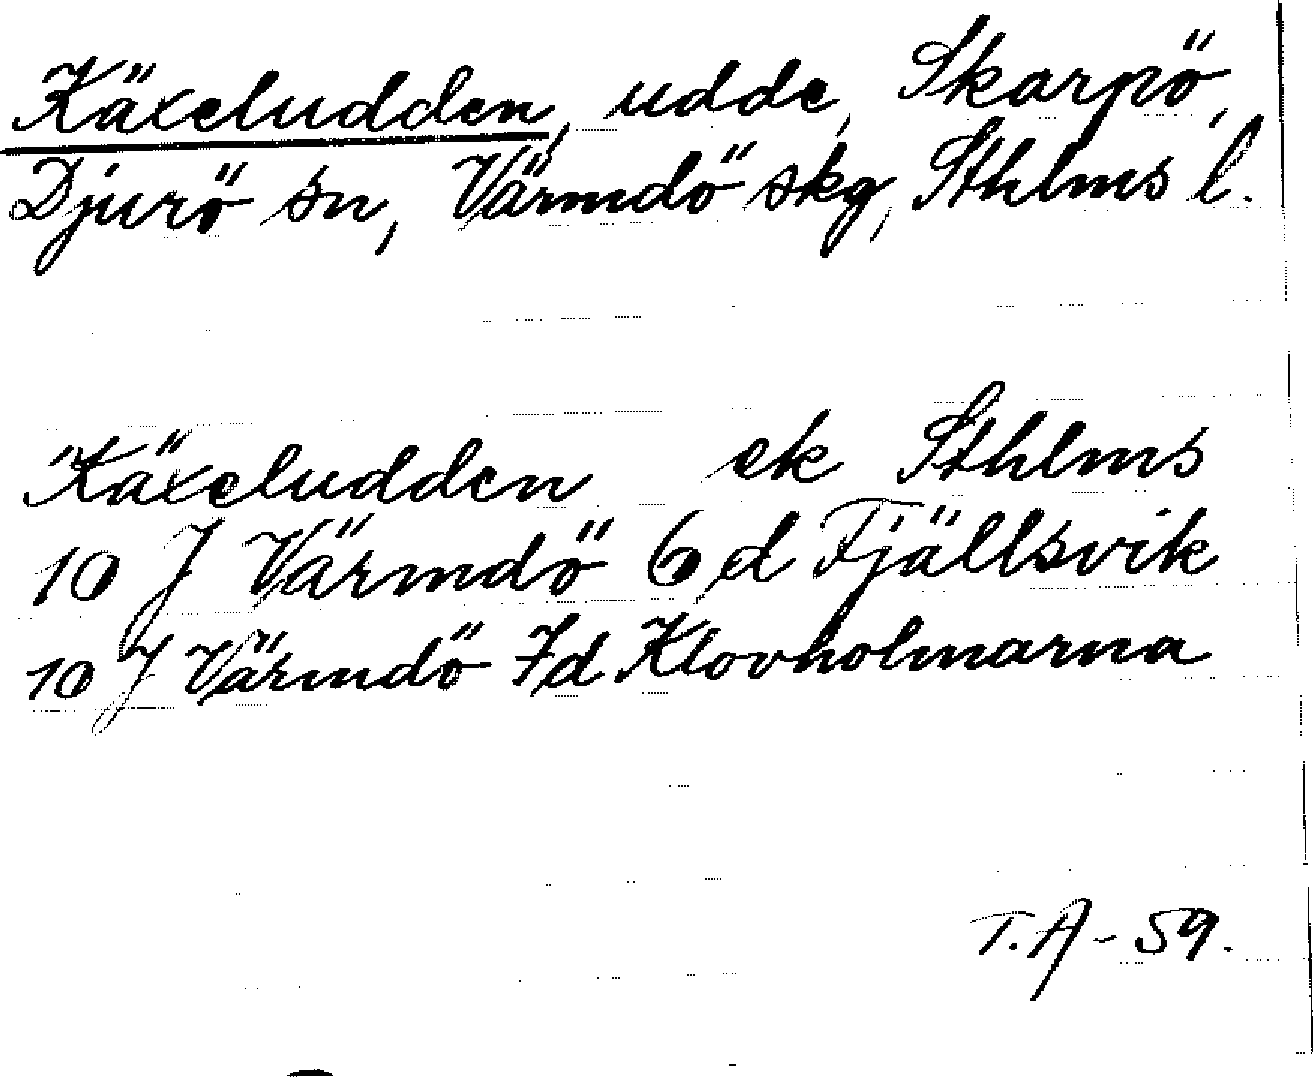 Käxeludden, udde, Skarpö,
Djurö sn, Värmdö skg, Sthlms l.
Käxeludden ek Sthlms
10 J Värmdö 6 d Fjällsvik
10 J Värmdö 7d Klovholmarna
T.A - 59.